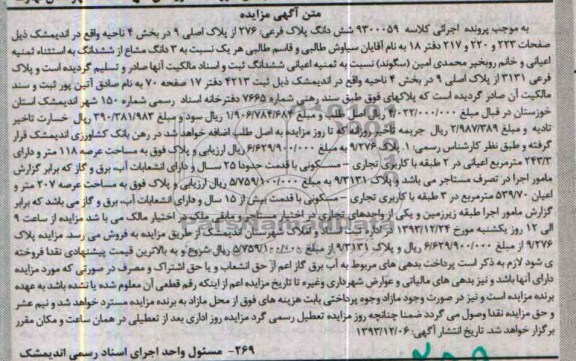 متن آگهی مزایده
به موجب پرونده اجرائی کلاسه ۹۳۰۰۰۵۹ شش دانگ پلاک فرعی: ۲۷۶ از پلاک اصلی ۹ در بخش ۴ ناحیه واقع در اندیمشک ذیل
صفحات ۲۲۳ و ۲۲۰ و ۲۱۷ دفتر ۱۸ به نام آقایان سیاوش طالبی و قاسم طالبی هر یک نسبت به ۳ دانگ مشاع از ششدانگ به استثناء ثمنیه
اعیانی و خانم روبخیر محمدی امین (سگوند) نسبت به ثمنیه اعیانی ششدانگ ثبت و اسناد مالکیت آنها صادر و تسلیم گردیده است و پلاک
فرعی ۳۱۳۱ از پلاک اصلی ۹ در بخش ۴ ناحیه واقع در اندیمشک ذیل ثبت ۴۲۱۳ دفتر ۱۷ صفحه ۷۰ به نام صادق آتین پور ثبت و سند
مالکیت آن صادر گردیده است که پلاکهای فوق طبق سند رهنی شماره ۷۶۶۵ دفترخانه اسناد رسمی شماره ۱۵۰ شهر اندیمشک استان
خوزستان در قبال مبلغ ۴/۰۲۲/۰۰۰/۰۰۰ ریال اصل طلب و مبلغ ۱/۹۰۶/۷۸۴/۶۸۴ ریال سود و مبلغ ۳۹۰/۳۸۱/۹۸۳ ریال خسارت تاخیر
تادیه و مبلغ ۲/۹۸۷/۳۸۹ ریال جریمه تاخیر روزانه که تا روز مزایده به اصل طلب اضافه خواهد شد در رهن بانک کشاورزی اندیمشک قرار
گرفته و طبق نظر کارشناس رسمی ۱. پلاک ۹/۲۷۶ به مبلغ ۶/۶۲۹/۹۰۰/۰۰۰ ریال ارزیابی و پلاک فوق به مساحت عرصه ۱۱۸ متر و دارای
۲۴۳/۳ مترمربع اعیانی در ۲ طبقه با کاربری تجاری – مسکونی با قدمت حدودا ۲۵ سال و دارای انشعابات آب، برق و گاز که برابر گزارش
مامور اجرا در تصرف مستاجر می باشد و پلاک ۹/۳۱۳۱ به مبلغ ۵/۷۵۹/۱۰۰/۰۰۰ ریال ارزیابی و پلاک فوق به مساحت عرصه ۲۰۷ متر و
اعیان ۵۳۹/۷۰ مترمربع در ۳ طبقه با کاربری تجاری – مسکونی با قدمت بیش از ۱۵ سال و دارای انشعابات آب، برق و گاز می باشد که برابر
گزارش مامور اجرا طبقه زیرزمین و یکی از واحدهای تجاری در اختیار مستاجر و مابقی ملک در اختیار مالک می با شد مزایده از ساعت ۹
الی ۱۲ روز یکشنبه مورخ ۱۳۹۳/۱۲/۲۴ در اداره ثبت اسناد و املاک شهرستان اندیمشک از طریق مزایده به فروش می رسد. مزایده پلاک
۹/۲۷۶ از مبلغ ۶/۶۲۹/۹۰۰/۰۰۰ ریال و پلاک ۹/۳۱۳۱ از مبلغ ۵/۷۵۹/۱۰۰/۰۰۰ ریال شروع و به بالاترین قیمت پیشنهادی نقدا فروخته
ی شود لازم به ذکر است پرداخت بدهی های مربوط به آب برق گاز اعم از حق انشعاب و یا حق اشتراک و مصرف در صورتی که مورد مزایده
دارای آنها باشد و نیز بدهی های مالیاتی و عوارض شهرداری وغیره تا تاریخ مزایده اعم از اینکه رقم قطعی آن معلوم شده یا نشده باشد به عهده
برنده مزایده است و نیز در صورت وجود مازاد وجوه پرداختی بابت هزینه های فوق از محل مازاد به برنده مزایده مسترد خواهد شد و نیم عشر
و حق مزایده نقدا وصول می گردد ضمنا چنانچه روز مزایده تعطیل رسمی گردد مزایده روز اداری بعد از تعطیلی در همان ساعت و مکان مقرر
برگزار خواهد شد. تاریخ انتشار آگهی: ۱۳۹۳/۱۲/۰۶
۲۶۹- مسئول واحد اجرای اسناد رسمی اندیمشک